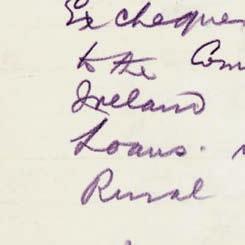 Exchequer
to the Com
Ireland
Loans.
Rural